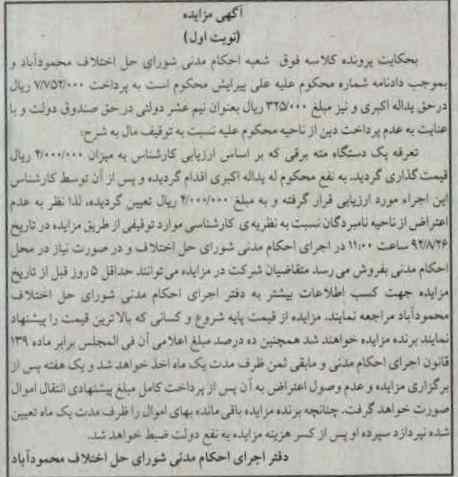 آگهی مزایده
(نوبت اول)
بحکایت پرونده کلاسه فوق شعبه احکام مدنی شورای حل اختلاف محمودآباد و
بموجب دادنامه شماره محکوم علیه علی پیرایش محکوم است به پرداخت ۷/۷۵۲/۰۰۰ ریال
درحق یداله اکبری و نیز مبلغ ۳۲۵/۰۰۰ ریال بعنوان نیم عشر دولتی در حق صندوق دولت و با
عنایت به عدم پرداخت دین از ناحیه محکوم علیه نسبت به توقیف مال به شرح:
تعرفه یک دستگاه مته برقی که بر اساس ارزیابی کارشناس به میزان ۲/۰۰۰/۰۰۰ ریال
قیمت گذاری گردید. به نفع محکوم له یداله اکبری اقدام گردیده و پس از آن توسط کارشناس
این اجراء مورد ارزیابی قرار گرفته و به مبلغ ۲/۰۰۰/۰۰۰ ریال تعیین گردیده، لذا نظر به عدم
اعتراض از ناحیه نامبردگان نسبت به نظریه ی کارشناسی موارد توقیفی از طریق مزایده در تاریخ
۹۲/۸/۲۶ ساعت ۱۱:۰۰ در اجرای احکام مدنی شورای حل اختلاف و در صورت نیاز در محل
احکام مدنی بفروش می رسد متقاضیان شرکت در مزایده می توانند حداقل ۵ روز قبل از تاریخ
مزایده جهت کسب اطلاعات بیشتر به دفتر اجرای احکام مدنی شورای حل اختلاف
محمودآباد مراجعه نمایند. مزایده از قیمت پایه شروع و کسانی که بالاترین قیمت را پیشنهاد
نمایند برنده مزایده خواهند شد همچنین ده درصد مبلغ اعلامی آن فی المجلس برابر ماده ۱۳۹
قانون اجرای احکام مدنی و مابقی ثمن ظرف مدت یک ماه اخذ خواهد شد و یک هفته پس از
برگزاری مزایده و عدم وصول اعتراض به آن پس از پرداخت کامل مبلغ پیشنهادی انتقال اموال
صورت خواهد گرفت. چنانچه برنده مزایده باقی مانده بهای اموال را ظرف مدت یک ماه تعیین
شده نپردازد سپرده او پس از کسر هزینه مزایده به نفع دولت ضبط خواهد شد.
دفتر اجرای احکام مدنی شورای حل اختلاف محمودآباد